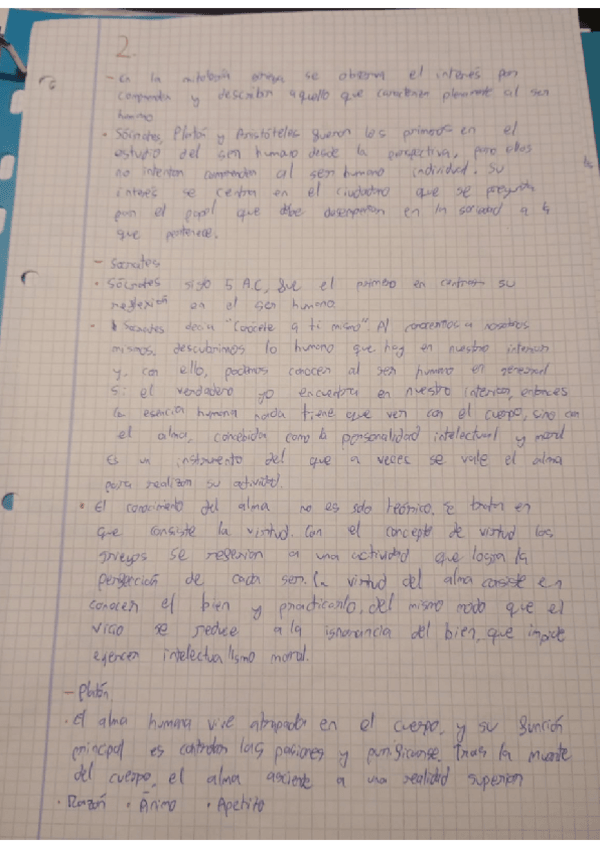 2.
- En la mitología griega se observa el interés por
comprender y describir aquello que caracteriza plenamente al ser
humano
• Sócrates, Platón y Aristóteles fueron los primeros en el
estudio del ser humano desde la perspectiva, pero ellos
no intentan comprender al ser humano individual. Su
interés se centra en el ciudadano que se pregunta
por el papel que debe desempeñar en la sociedad a la
que pertenece.
- Sócrates
• Sócrates siglo 5 A.C, fue el primero en centrar su
reflexión en el ser humano
• Sócrates decía "Conocete a ti mismo" Al conocernos a nosotros
mismos, descubrimos lo humano que hay en nuestro interior
y, con ello, podemos conocer al ser humano en general
Si el verdadero yo encuentra en nuestro interior, entonces
la esencia humana nada tiene que ver con el cuerpo, sino con
el alma, concebida como la personalidad intelectual y moral
Es un instrumento del que a veces se vale el alma
para realizar su actividad.
• El conocimiento del alma no es solo teórico, se trata en
que consiste la virtud. Con el concepto de virtud los
griegos se referian a una actividad que logra la
perfección de cada ser. La virtud del alma consiste en
conocer el bien y practicarlo, del mismo modo que el
vicio se reduce a la ignorancia del bien, que impide
ejercer intelectualismo moral.
- Platón
• El alma humana vive atrapada en el cuerpo, y su función
principal es controlar las pasiones y purificarse. Tras la muerte
del cuerpo, el alma asciente a una realidad superior
• Razón • Ánimo • Apetito